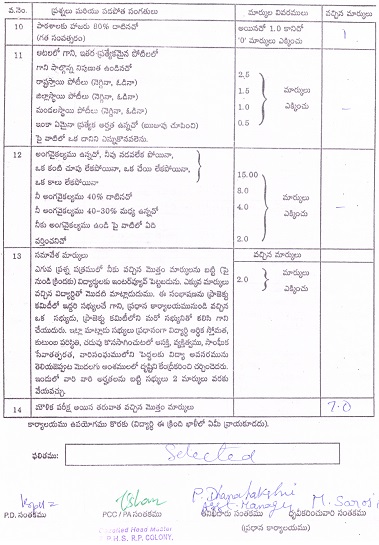 వ.నెం. ప్రశ్నలు మరియు పడపోత వంగతులు మార్కుల వివరములు వచ్చిన మార్కులు
10 పాఠశాలకు హాజరు 80% దాటినచో అయినచో 1.0 కానిచో 1
(గత సంవత్సరం) '0' మార్కులు ఎక్కించు
11 ఆటలలో గాని, ఇతర-ప్రత్యేకమైన పోటీలలో
గాని పాల్గొన్న నిపుణత ఉండినచో 2.5
రాష్ట్రస్థాయి పోటీలు (నెగ్గినా, ఓడినా) 1.5 మార్కులు
జిల్లాస్థాయి పోటీలు (నెగ్గినా, ఓడినా) 1.0 ఎక్కించు
మండలస్థాయి పోటీలు (నెగ్గినా, ఓడినా)
ఇంకా ఏమైనా ప్రత్యేక అర్హత ఉన్నచో (ఋజువు చూపించి) 0.5
పై వాటిలో ఒక దానిని ఎన్నుకొనవలెను.
12 అంగవైకల్యము ఉన్నచో, నీవు నడవలేక పోయినా,
ఒక కంటి చూపు లేకపోయినా, ఒక చేయి లేకపోయినా, 15.00
ఒక కాలు లేకపోయినా 8.0
నీ అంగవైకల్యము 40% దాటినచో 4.0 మార్కులు
నీ అంగవైకల్యము 40-30% మధ్య ఉన్నచో ఎక్కించు
నీకు అంగవైకల్యము ఉండి పై వాటిలో ఏది 2.0
వర్తించనిచో
13 సమావేశ మార్కులు వచ్చిన మార్కులు
ఎగువ ప్రశ్న పత్రములో నీకు వచ్చిన మొత్తం మార్కులను బట్టి (పై 2.0 మార్కులు
నుండి క్రిందకు) విద్యార్థులకు ఇంటర్వ్యూవ్ పెట్టబడును. ఎక్కువ మార్కులు ఎక్కించు
వచ్చిన విద్యార్థితో మొదటి మాట్లాడుదుము. ఈ సంభాషణను ప్రాజెక్టు
కమిటీలో ఇద్దరి సభ్యులచే గాని, ప్రధాన కార్యాలయమునుండి వచ్చిన
ఒక సభ్యుడు, ప్రాజెక్టు కమిటీలోని మరో సభ్యునితో కలిసి గాని
చేయుదురు. ఇట్లా మాట్లాడు సభ్యులు ప్రధానంగా విద్యార్థి ఆర్థిక స్తోమత,
కుటుంబ పరిస్థితి, చదువు కొనసాగించుటలో ఆసక్తి, వ్యక్తిత్వము, సాంఘీక
సేవాతత్పరత,
ఇందులో వారి వారి అర్హతలను బట్టి సభ్యులు 2 మార్కులు వరకు
వేయవచ్చు.
14 మౌళిక పరీక్ష అయిన తరువాత వచ్చిన మొత్తం మార్కులు 7.0
కార్యాలయము ఉపయోగము కొరకు (విద్యార్థి ఈ క్రింది ఖాళీలో ఏమీ వ్రాయకూడదు).
ఫలితము: Selected
P. Dhanalakshmi
Asst. Manager M. Saroj
P.D. సంతకము PCC / PA సంతకము తనిఖీదారు సంతకము ధృవీకరించువారి సంతకము
(ప్రధాన కార్యాలయం)
Head Master
H.S. R.P. COLONY,